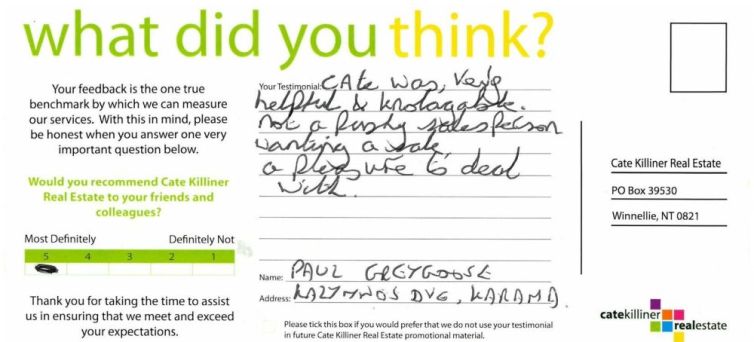 what did you think?
Your feedback is the one true
benchmark by which we can measure
our services. With this in mind, please
be honest when you answer one very
important question below.
Would you recommend Cate Killiner
Real Estate to your friends and
colleagues?
Most Definitely Definitely Not
5 4 3 2 1
Thank you for taking the time to assist
us in ensuring that we meet and exceed
your expectations.
Your Testimonial: CAte was, Very
helpful & knolaggable.
not a pushy salesperson
wanting a sale
a pleasure to deal
with.
Name: PAUL GREYGOOSE
Address: KALYMNOS DVE, KARAMA.
Please tick this box if you would prefer that we do not use your testimonial
in future Cate Killiner Real Estate promotional material.
Cate Killiner Real Estate
PO Box 39530
Winnellie, NT 0821
catekilliner
realestate